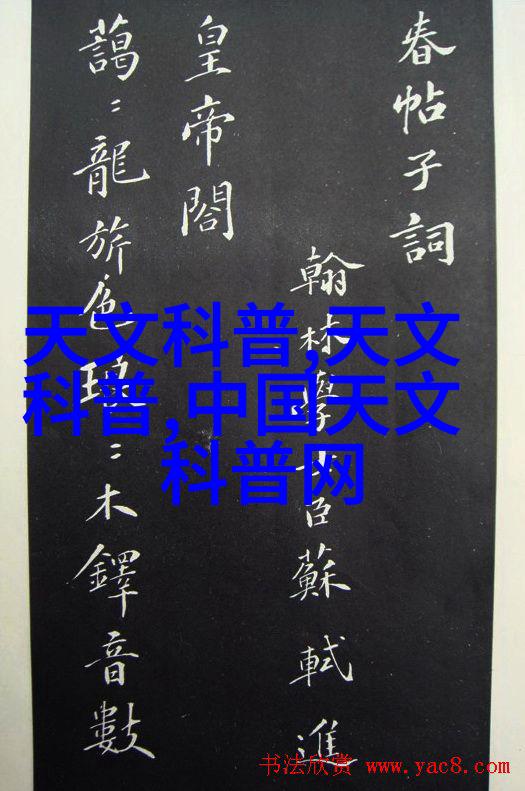 春帖子詞
翰林學士臣蘇軾進
皇帝閤
藹〻龍旂色琅〻木鐸音數
天文科普,天文
科普,中国天文
科普网
书法欣赏 www.yac8.com